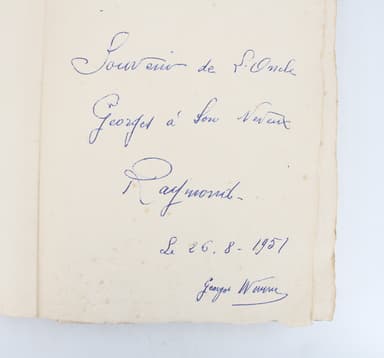 Souvenir de L'Oncle
Georges à Son Neveux
Raymond.
Le 26.8-1951
Georges